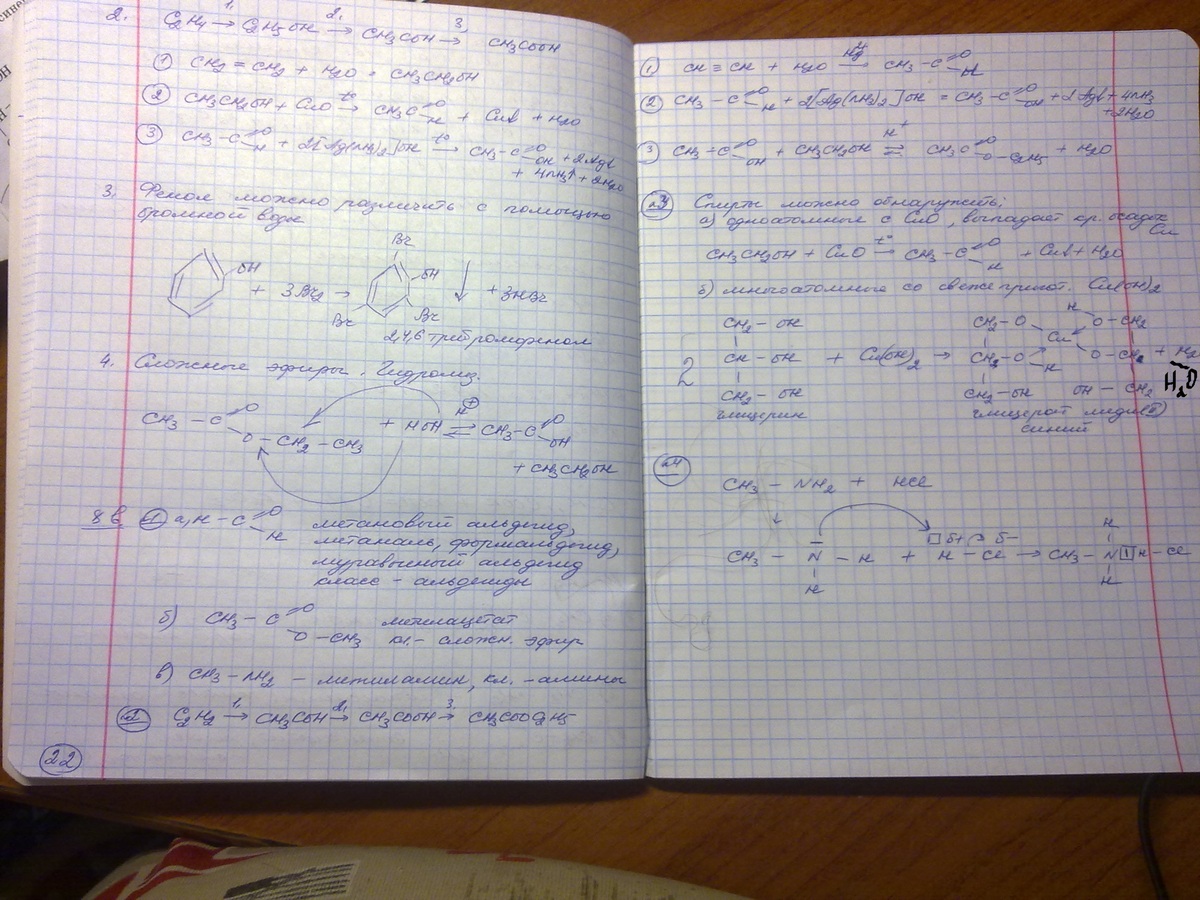 2. C2H4 → C2H5OH → CH3COH → CH3COOH
1. 2. 3.
① CH2 = CH2 + H2O = CH3CH2OH
② CH3CH2OH + CuO →t° CH3C=O H + Cu↓ + H2O
③ CH3 - C=O H + 2[Ag(NH3)2]OH →t° CH3 - C=O OH + 2Ag↓
+ 4NH3↑ + 2H2O
3. Фенол можно различить с помощью
бромной воды
OH + 3Br2 → Br OH Br Br ↓ + 3HBr
2,4,6 трибромфенол
4. Сложные эфиры. Гидролиз.
CH3 - C=O O - CH2 - CH3 + HOH ⇌ H⊕ CH3 - C=O OH
+ CH3CH2OH
8 в. №1 а) H - C=O H метановый альдегид,
метаналь, формальдегид,
муравьиный альдегид
класс - альдегиды
б) CH3 - C=O O - CH3 метилацетат
кл. - сложн. эфир
в) CH3 - NH2 - метиламин, кл. - амины
№2 C2H2 →1. CH3COH →2. CH3COOH →3. CH3COOC2H5
22
① CH ≡ CH + H2O → CH3 - C=O H
② CH3 - C=O H + 2[Ag(NH3)2]OH = CH3 - C=O OH + 2Ag↓ + 4NH3
+ 2H2O
③ CH3 - C=O OH + CH3CH2OH ⇌ H+ CH3C=O O - C2H5 + H2O
№3 Спирты можно обнаружить:
а) одноатомные с CuO, выпадает кр. осадок
Cu
CH3CH2OH + CuO →t° CH3 - C=O H + Cu↓ + H2O
б) многоатомного со свежепригот. Cu(OH)2
CH2 - OH CH2 - O H O - CH2
2 CH - OH + Cu(OH)2 → CH2 - O Cu O - CH2 + H2
H H2O
CH2 - OH CH2 - OH OH - CH2
глицерин глицерат меди(II)
синий
№4
CH3 - NH2 + HCl
H
CH3 - N - H + H δ+ - Cl δ- → CH3 - N H - Cl
H H